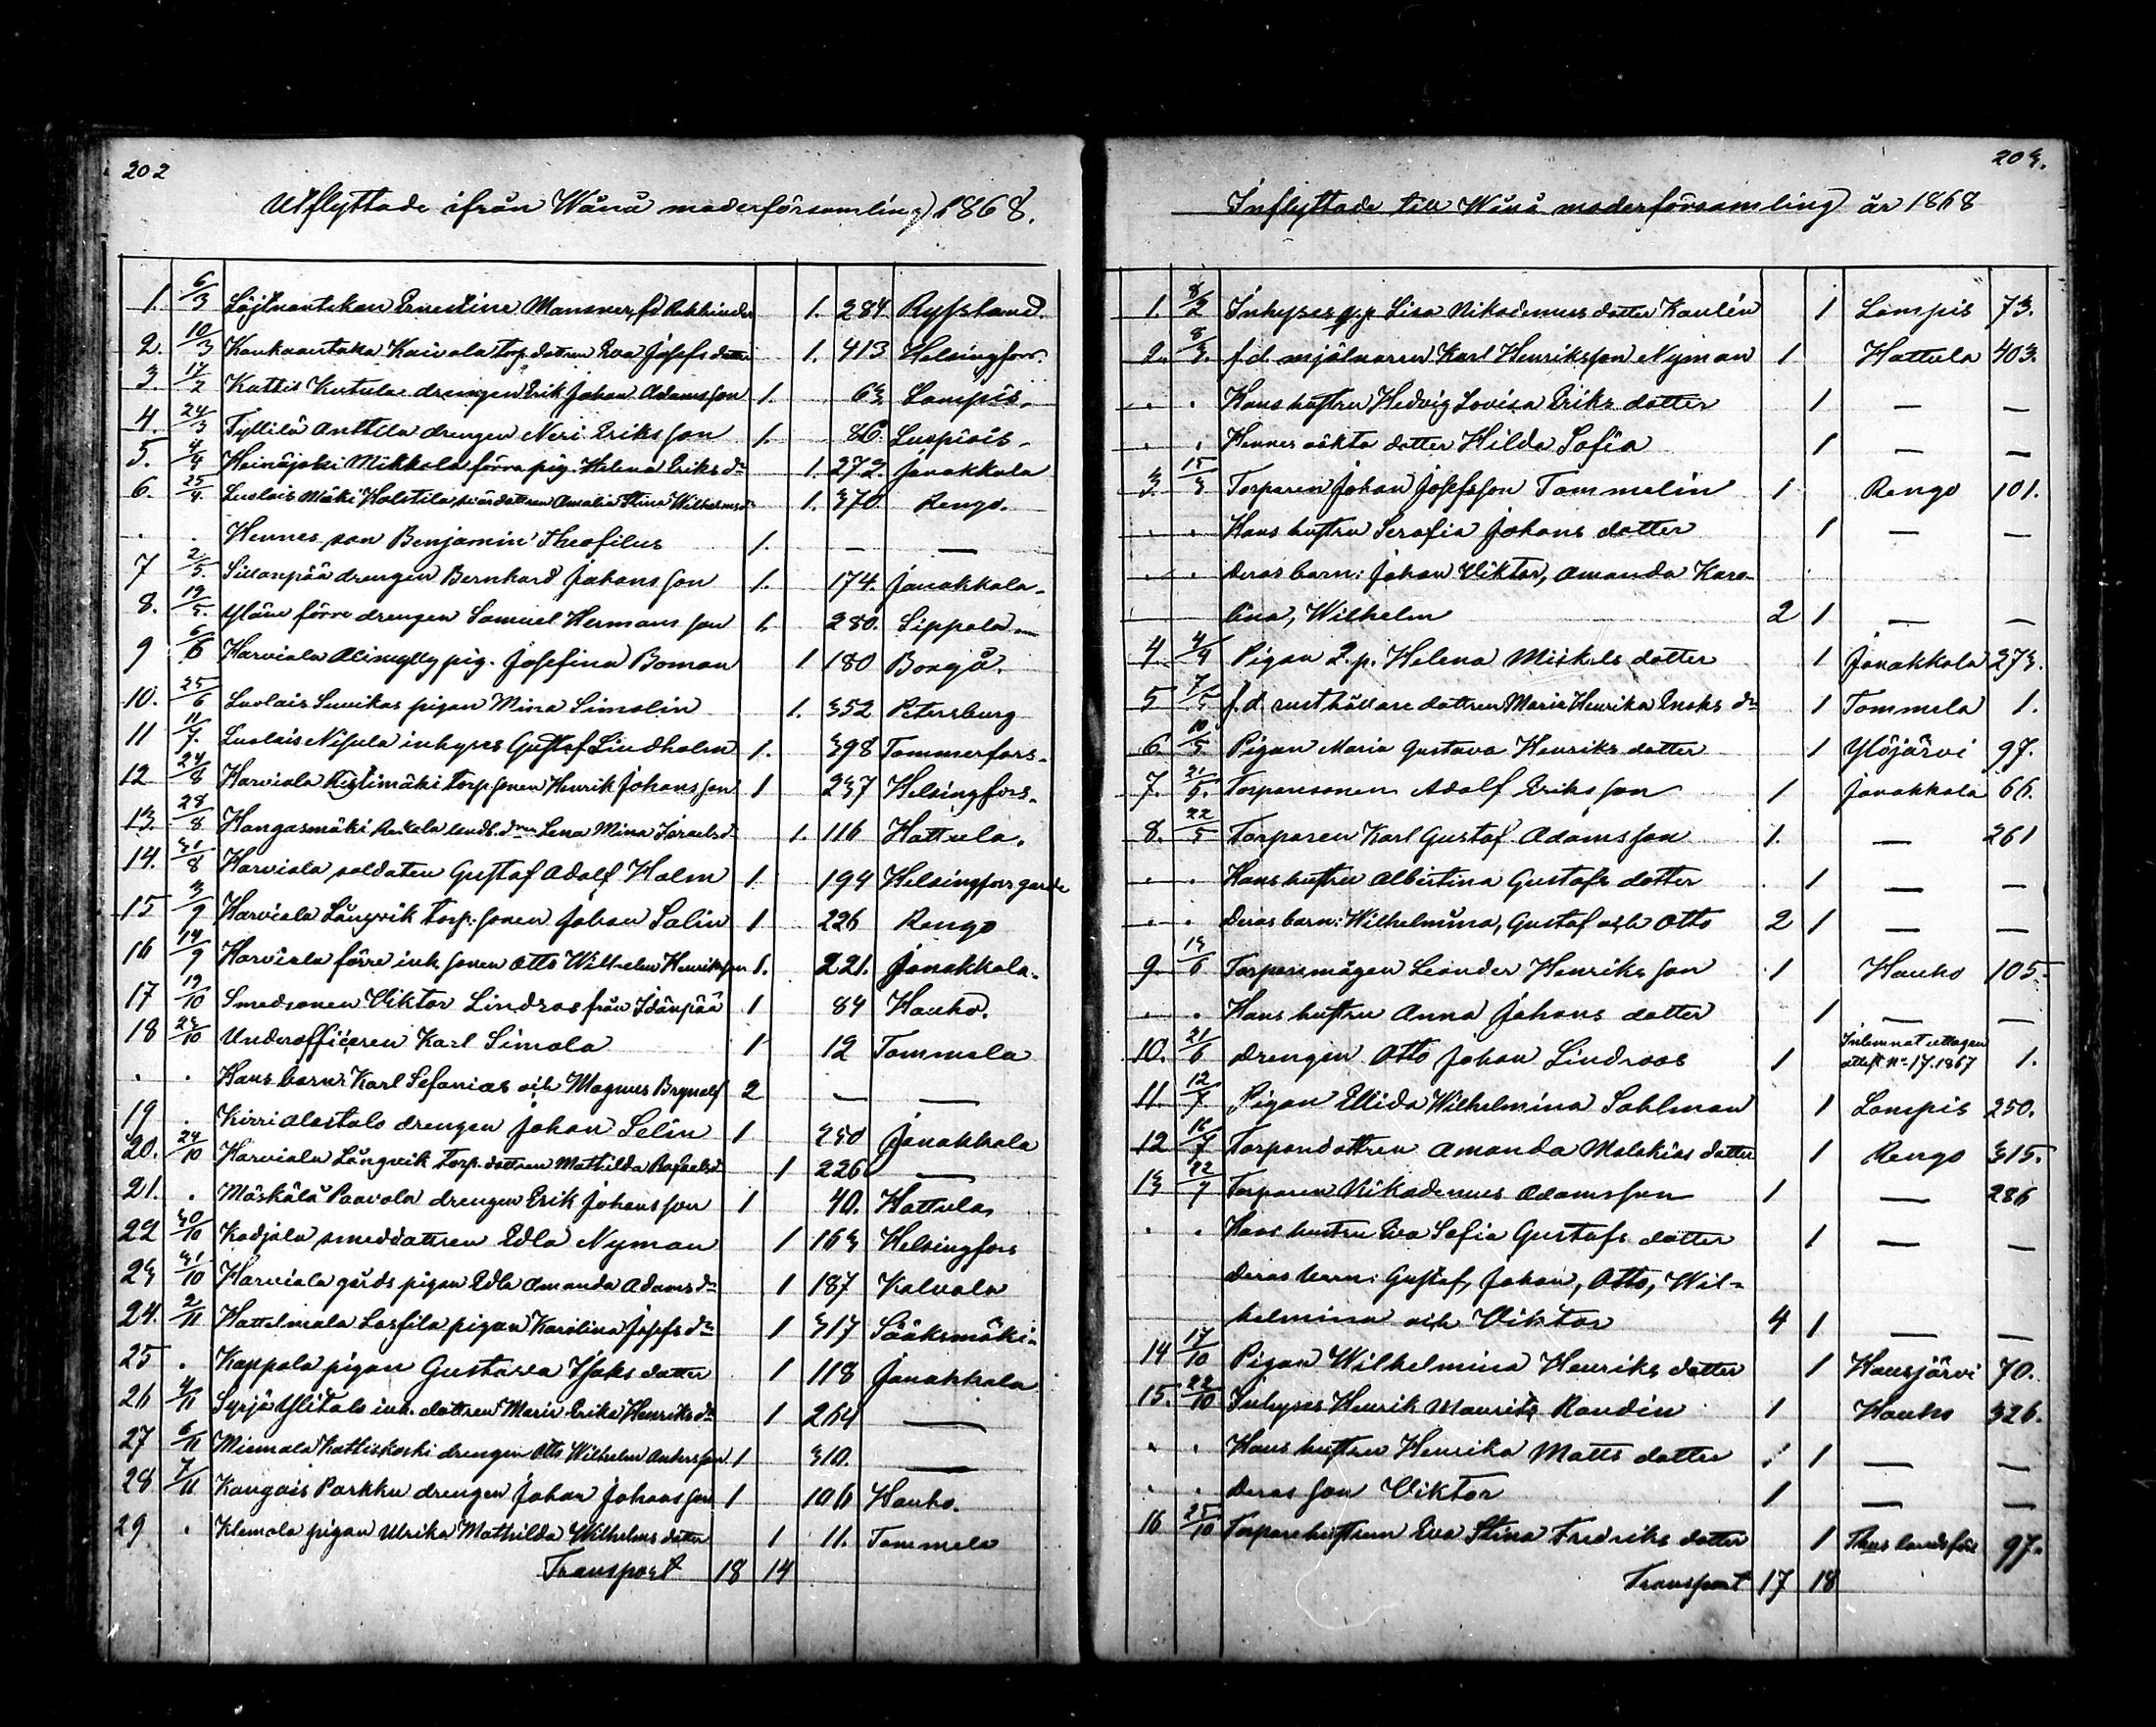 202
Utflyttade ifrån Wånå moderförsamling 1868.
1. 6/3 Löjtnantskan Ernestine Mansner, fd Rehbinder 1. 284. Ryssland.
2. 10/3 Kankaantaka Kaivola torp. dottren Eva Josefs dotter 1. 413 Helsingfors.
3. 17/2 Kattis Kutula drengen Erik Johan Adamsson 1. 63. Lampis.
4. 24/3 Tyllilä Anttila drengen Neri Eriksson 1. 86. Luopiois.
5. 4/4 Heinäjoki Mikkola förra pig. Helena Eriksdr 1. 272. Janakkala
6. 25/4. Luolais Mäki Holstila svärdottren Amalia Stina Wilhelmsdr 1. 370. Rengo.
. . Hennes son Benjamin Theofilus 1. — —
7 2/5. Sillanpää drengen Bernhard Johansson 1. 174. Janakkala.
8. 19/5. Yläne förre drengen Samuel Hermansson 1. 280. Sippola
9 6/6 Harviala Alimylly pig. Josefina Boman 1 180 Borgå.
10. 25/6 Luolais Suvikas pigan Mina Simolin 1. 352 Petersburg
11 11/7. Luolais Nisula inhyses Gustaf Lindholm 1. 398 Tammerfors.
12 24/8 Harviala Ristimäki torp. sonen Henrik Johansson 1 237 Helsingfors.
13. 28/8 Hangasmäki Rekola Lena Mina Israelsdr 1. 116 Hattula.
14. 31/8 Harviala soldaten Gustaf Adolf Holm 1 194 Helsingfors garde
15 3/9 Harviala Långvik torp. sonen Johan Salin 1 226 Rengo
16 14/9 Harviala förre inh. sonen Otto Wilhelm Henriksson 1. 221. Janakkala.
17 19/10 Smedsonen Viktor Lindroos från Idänpää 1 84 Hauho.
18 23/10 Underofficeren Karl Simola 1 12 Tammela
. . Hans barn: Karl Sefanias och Magnus Brynolf 2 — —
19 . Kirri Alastalo drengen Johan Selin 1 250 Janakkala
20. 24/10 Harviala Långvik torp. dottren Mathilda Rafaelsd 1 226 —
21. . Mäskälä Paavola drengen Erik Johansson 1 40. Hattula
22 30/10 Kadjala smeddottren Edla Nyman 1 163 Helsingfors
23 31/10 Harviala gårds pigan Edla Amanda Adamsdr 1 187 Kalvola
24. 2/11 Hattelmala Lassila pigan Karolina Josefsdr 1 317 Sääksmäki.
25 . Kappola pigan Gustava Isaks dotter 1 118 Janakkala
26 4/11 Syrjä Ylitalo inh. dottren Maria Erika Henriksdr 1 264 —
27 6/11 Miemala Kattiskoski drengen Otto Wilhelm Andersson 1 310. —
28 7/11 Kangais Parkku drengen Johan Johansson 1 106 Hauho.
29 . Klemola pigan Ulrika Mathilda Wilhelms dotter 1 11. Tammela
Transport 18 14
203.
Inflyttade till Wånå moderförsamling år 1868
1. 8/2 Inhyses Lisa Nikodemus dotter Kaulin 1 Lampis 73.
2. 8/3. f.d. mjölnaren Karl Henriksson Nyman 1 Hattula 403.
. . Hans hustru Hedvig Lovisa Eriks dotter 1 — —
. . Hennes oäkta dotter Hilda Sofia 1 — —
3. 15/3 Torparen Johan Josefsson Tammelin 1 Rengo 101.
. . Hans hustru Serafia Johans dotter 1 — —
. . Deras barn: Johan Viktor, Amanda Karo-
lina, Wilhelm 2 1 — —
4. 4/4 Pigan 2. p. Helena Mickels dotter 1 Janakkala 273.
5 7/5 f.d. rusthållare dottren Maria Henrika Enoksdr 1 Tammela 1.
6. 10/5 Pigan Maria Gustava Henriks dotter 1 Ylöjärvi 97.
7. 21/5. Torparesonen Adolf Eriksson 1 Janakkala 66.
8. 22/5 Torparen Karl Gustaf Adamsson 1. — 261
. . Hans hustru Albertina Gustafs dotter 1 — —
. . Deras barn: Wilhelmina, Gustaf och Otto 2 1 — —
9. 13/6 Torparemågen Leander Henriksson 1 Hauho 105.
. . Hans hustru Anna Johans dotter 1 — —
10. 21/6 Drengen Otto Johan Lindroos 1 Inlemnat uttagen attest No 17. 1867 1.
11. 12/7 Pigan Ellida Wilhelmina Sahlman 1 Lampis 250.
12 16/7 Torparedottren Amanda Malakias dotter 1 Rengo 315.
13 22/7 Torparen Nikodemus Adamsson 1 — 286
. . Hans hustru Eva Sofia Gustafs dotter 1 — —
Deras barn: Gustaf, Johan, Otto, Wil-
helmina och Viktor 4 1 — —
14 17/10 Pigan Wilhelmina Henriks dotter 1 Hausjärvi 70.
15. 22/10 Inhyses Henrik Mauritz Randin 1 Hauho 326.
. . Hans hustru Henrika Matts dotter 1 — —
. . Deras son Viktor 1 — —
16 25/10 Torparehustrun Eva Stina Fredriks dotter 1 Thus landsförs 97.
Transport 17 18